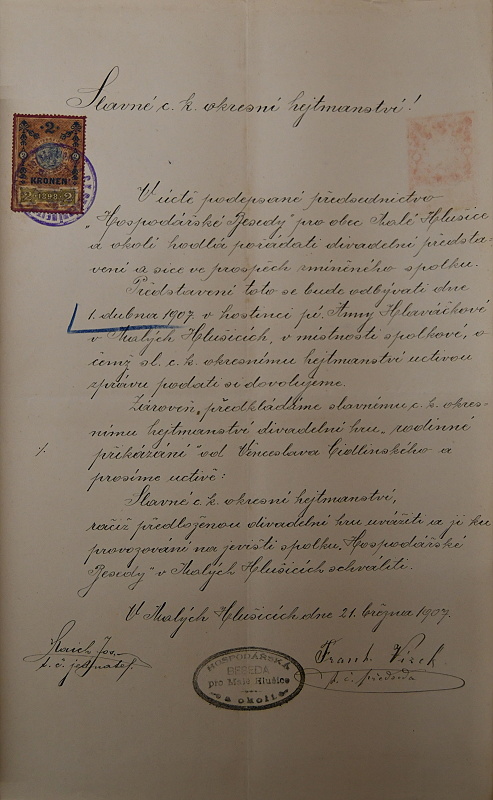 Slavné c. k. okresní hejtmanství!
2
KRONEN
2 1898 2
V úctě podepsané předsednictvo
„Hospodářské Besedy" pro obec Malé Hlušice
a okolí hodlá pořádati divadelní předsta-
vení a sice ve prospěch zmíněného spolku.
Představení toto se bude odbývati dne
1. dubna 1907. v hostinci pí. Anny Hlaváčkové
v Malých Hlušicích, v místnosti spolkové, o
čemž sl. c. k. okresnímu hejtmanství uctivou
zprávu podati si dovolujeme.
Zároveň předkládáme slavnému c. k. okres-
nímu hejtmanství divadelní hru „rodinné
přikázání" od Věnceslava Cidlinského a
prosíme uctivě:
Slavné c. k. okresní hejtmanství,
račiž předloženou divadelní hru uvážiti a ji ku
provozování na jevišti spolku „Hospodářské
Besedy" v Malých Hlušicích schváliti.
V Malých Hlušicích dne 21. března 1907.
t. č. jednatel
HOSPODÁŘSKÁ
BESEDA
pro Malé Hlušice
a okolí
Frant.
t. č. předseda